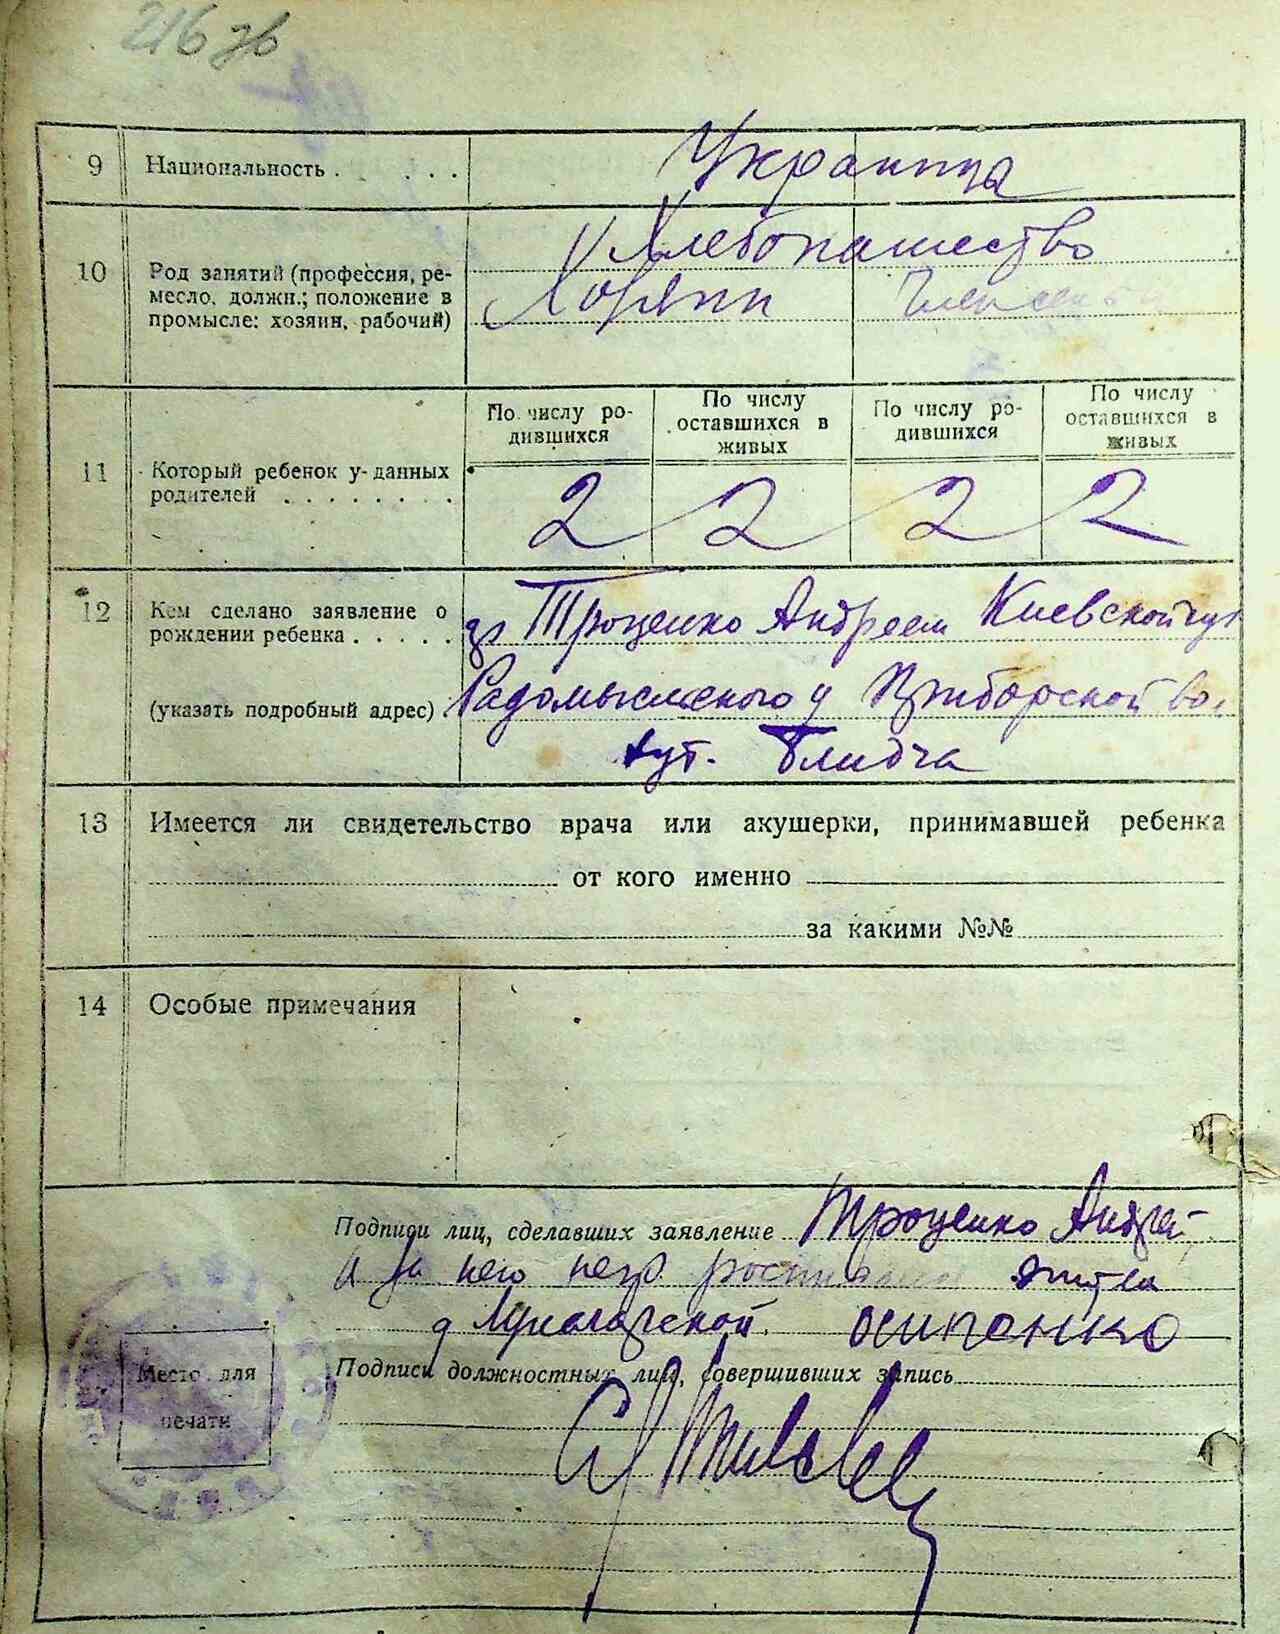 216 зв
9 Национальность . . . . . Украинца
10 Род занятий (профессия, ре-
месло, должн.; положение в
промысле: хозяин, рабочий)
Хлебопашество
Хозяин
По числу ро-
дившихся
По числу
оставшихся в
живых
По числу ро-
дившихся
По числу
оставшихся в
живых
11 Который ребенок у данных
родителей . . . . . . . .
2 2 2 2
12 Кем сделано заявление о
рождении ребенка . . . . .
(указать подробный адрес)
Троценко Андреем Киевской губ
Радомысльского у Приборской во.
хут. Блидча
13 Имеется ли свидетельство врача или акушерки, принимавшей ребенка
от кого именно
за какими №№
14 Особые примечания
Подписи лиц, сделавших заявление Троценко Андрей
А за него негр
д осипенко
Подписи должностных лиц, совершивших запись
Место для
печати